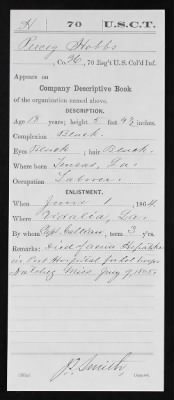 H 70 U.S.C.T.
Percy Hobbs
, Co. H, 70 Reg't U.S. Col'd Inf.
Appears on
Company Descriptive Book
of the organization named above.
DESCRIPTION.
Age 18 years; height 5 feet 9½ inches.
Complexion Black
Eyes Black ; hair Black
Where born Tensas, La.
Occupation Laborer
ENLISTMENT.
When June 1 , 1864.
Where Vidalia, La.
By whom Capt. ; term 3 y'rs.
Remarks: Died of
in Post Hospital for Col troops
Natchez Miss Jany 9, 1865.
J. Smith